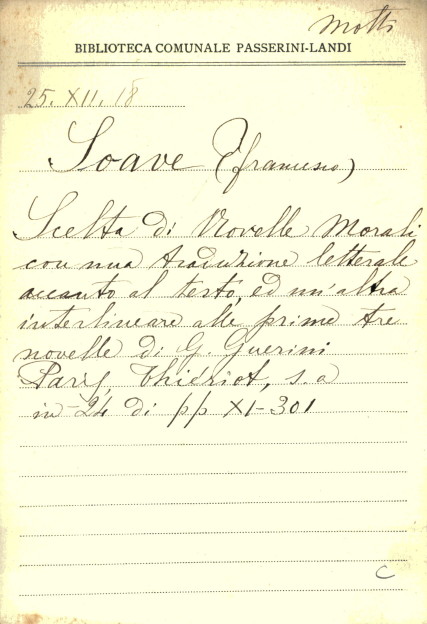 Motti
BIBLIOTECA COMUNALE PASSERINI-LANDI
25. XII. 18
Soave (Francesco)
Scelta di Novelle Morali
con una traduzione letterale
accanto al testo, ed un'altra
interlineare alle prime tre
novelle di G. Guerini
Paris, Thiériot, s. a
in-24 di pp XI-301
C